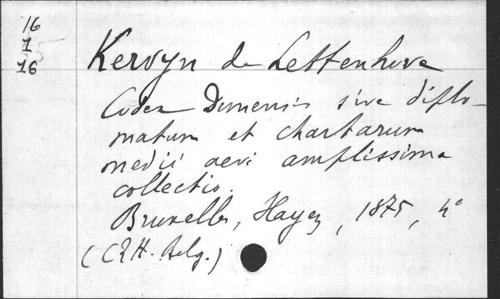 16
1
16
Kervyn de Lettenhove
Codex Dunensis sive diplo-
matum et chartarum
medii aevi amplissima
collectio.
Bruxelles, Hayez, 1875, 4°
(CRH. Belg.)